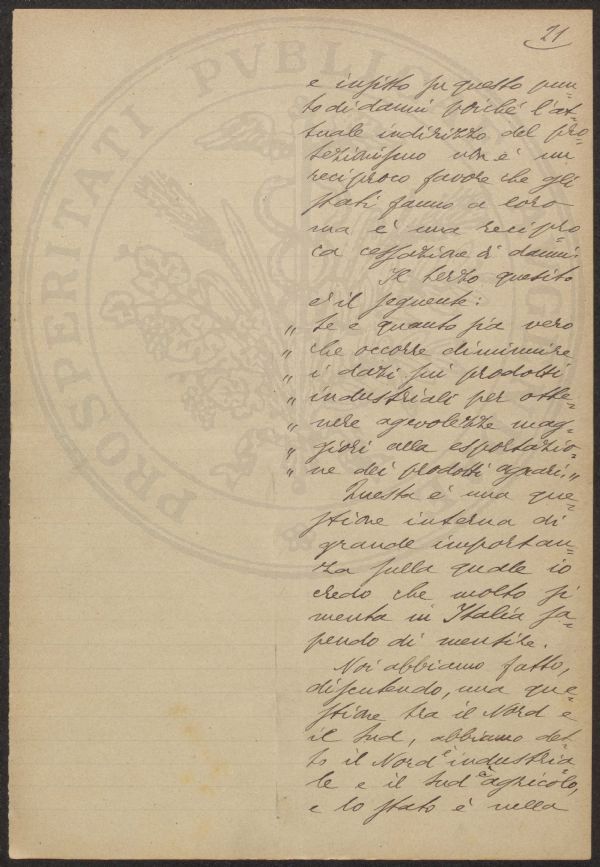 21
PROSPERITATI PVBLI
e insisto su questo pun-
to di danni poiché l'at-
tuale indirizzo del pro-
tezionismo non è un
reciproco favore che gli
stati fanno a loro
ma è una recipro
ca cessazione di danni.
Il terzo quesito
è il seguente:
„ Se e quanto sia vero
„ che occorre diminuire
„ i dazi sui prodotti
„ industriali per otte-
„ nere agevolezze mag-
„ giori alla esportazio-
„ ne dei prodotti agrari. „
Questa è una que-
stione interna di
grande importan-
za sulla quale io
credo che molto si
menta in Italia sa-
pendo di mentire.
Noi abbiamo fatto,
discutendo, una que-
stione tra il Nord e
il Sud, abbiamo det-
to il Nord è industria-
le e il Sud è agricolo,
e lo stato è nella